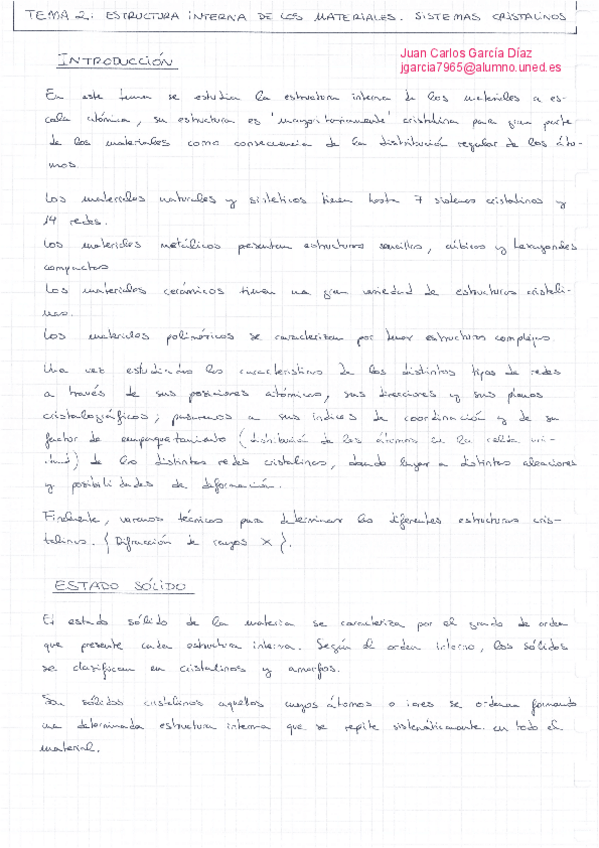 TEMA 2: ESTRUCTURA INTERNA DE LOS MATERIALES. SISTEMAS CRISTALINOS
Juan Carlos García Díaz
jgarcia7965@alumno.uned.es
INTRODUCCIÓN
En este tema se estudian la estructura interna de los materiales a es-
cala atómica, su estructura es 'mayoritariamente' cristalina para gran parte
de los materiales como consecuencia de la distribución regular de los áto-
mos.
Los materiales naturales y sintéticos tienen hasta 7 sistemas cristalinos y
14 redes.
Los materiales metálicos presentan estructuras sencillas, cúbicos y hexagonales
compactas
Los materiales cerámicos tienen una gran variedad de estructuras cristali-
nas.
Los materiales poliméricos se caracterizan por tener estructuras complejas.
Una vez estudiados las características de los distintos tipos de redes
a través de sus posiciones atómicas, sus direcciones y sus planos
cristalográficos; pasaremos a sus índices de coordinación y de su
factor de empaquetamiento (distribución de los átomos en la celda uni-
taria) de las distintas redes cristalinas, dando lugar a distintas aleaciones
y posibilidades de deformación.
Finalmente, veremos técnicas para determinar las diferentes estructuras cris-
talinas. {Difracción de rayos X}.
ESTADO SÓLIDO
El estado sólido de la materia se caracteriza por el grado de orden
que presente cada estructura interna. Según el orden interno, los sólidos
se clasifican en cristalinos y amorfos.
Son sólidos cristalinos aquellos cuyos átomos o iones se ordenan formando
una determinada estructura interna que se repite sistemáticamente en todo el
material.